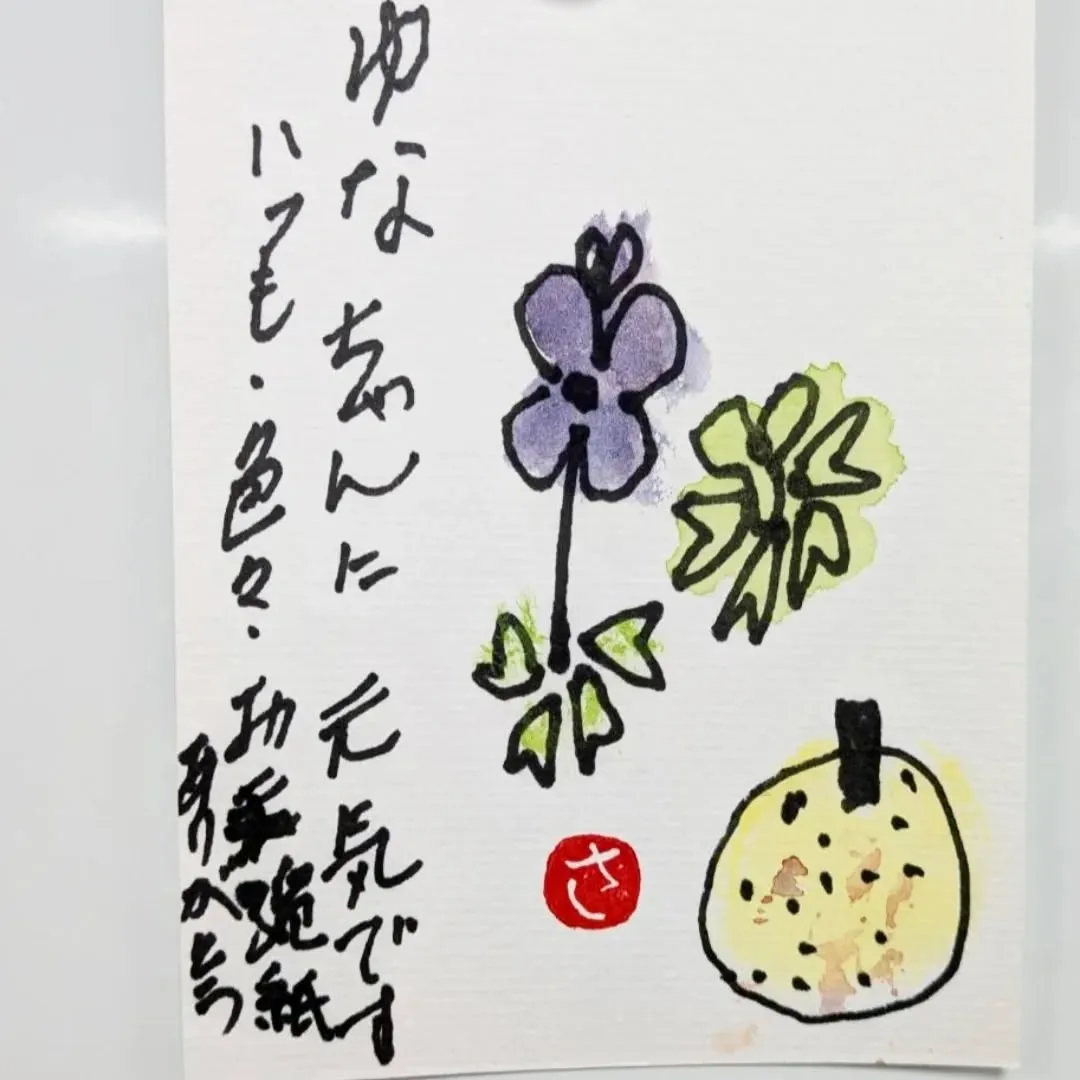 ゆなちゃんに 元気です
いつも・色々・お手絵紙
ありがとう
さ